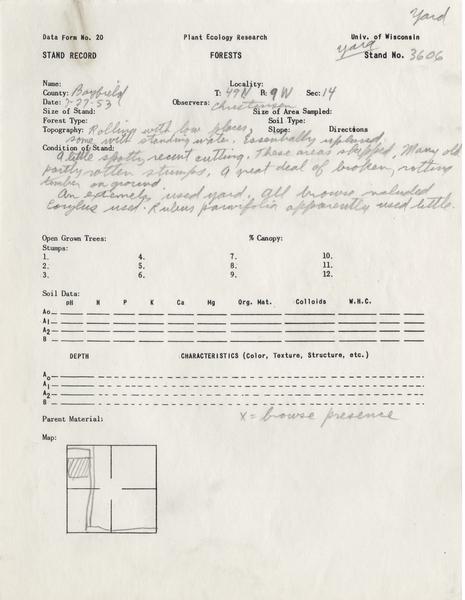 Yard
Data Form No. 20 Plant Ecology Research Univ. of Wisconsin
yard
STAND RECORD FORESTS Stand No. 3606
Name: Locality:
County: Bayfield T: 49N R: 9W Sec: 14
Date: 7-27-53 Observers: Christensen
Size of Stand: Size of Area Sampled:
Forest Type: Soil Type:
Topography: Rolling with low places, Slope: Directions
some with standing water. Essentially upland.
Condition of Stand:
A little spotty, recent cutting. These areas skipped. Many old
partly rotten stumps, A great deal of broken, rotting
timber on ground.
An extremely used yard. All browse included
Corylus used. Rubus parvifolia apparently used little.
Open Grown Trees: % Canopy:
Stumps:
1. 4. 7. 10.
2. 5. 8. 11.
3. 6. 9. 12.
Soil Data:
pH N P K Ca Mg Org. Mat. Colloids W.H.C.
Ao
A1
A2
B
DEPTH CHARACTERISTICS (Color, Texture, Structure, etc.)
Ao
A1
A2
B
Parent Material: X = browse presence
Map: